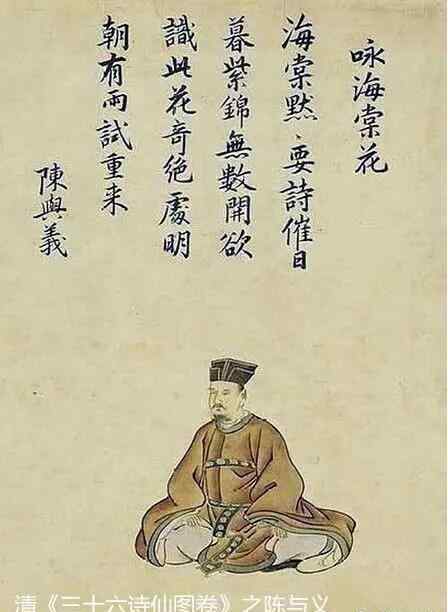 咏海棠花
海棠默〻要詩催日
暮紫錦無數開欲
識此花奇絶處明
朝有雨試重来
陳與義
清《三十六诗仙图卷》之陈与义